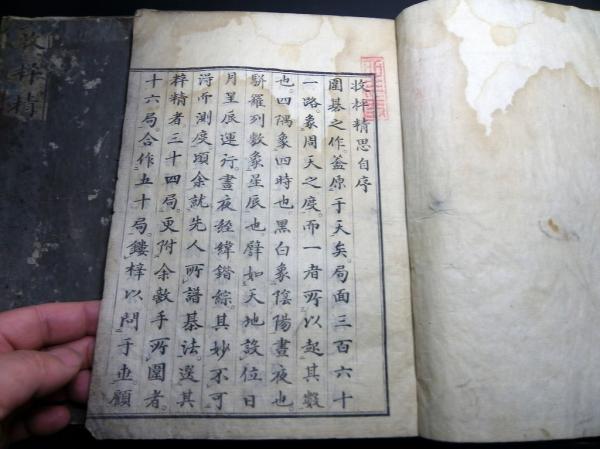 收枰精思自序
圍棊之作蓋原于天矣局面三百六十
一路象周天之度而一者所以起其數
也四隅象四時也黑白象陰陽晝夜也
駢羅列數象星辰也譬如天地設位日
月星辰運行晝夜經緯錯綜其妙不可
得而測度頃余就先人所譜棊法選其
粹精者三十四局更附余敵手所圍者
十六局合作五十局鏤梓以問于世顧
收枰精